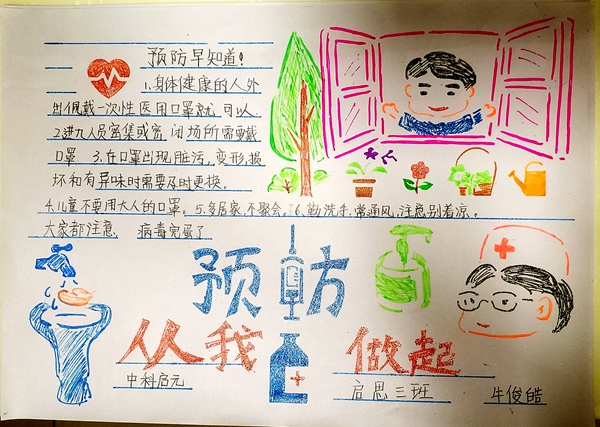 预防早知道!
1.身体健康的人外
出佩戴一次性医用口罩就可以
2进入人员密集或密闭场所需要戴
口罩 3.在口罩出现脏污,变形,损
坏和有异味时需要及时更换.
4.儿童不要用大人的口罩。5.多居家,不聚会。6.勤洗手,常通风,注意别着凉.
大家都注意 病毒完蛋了
预防
从我 做起
中科启元 启思三班 牛俊皓